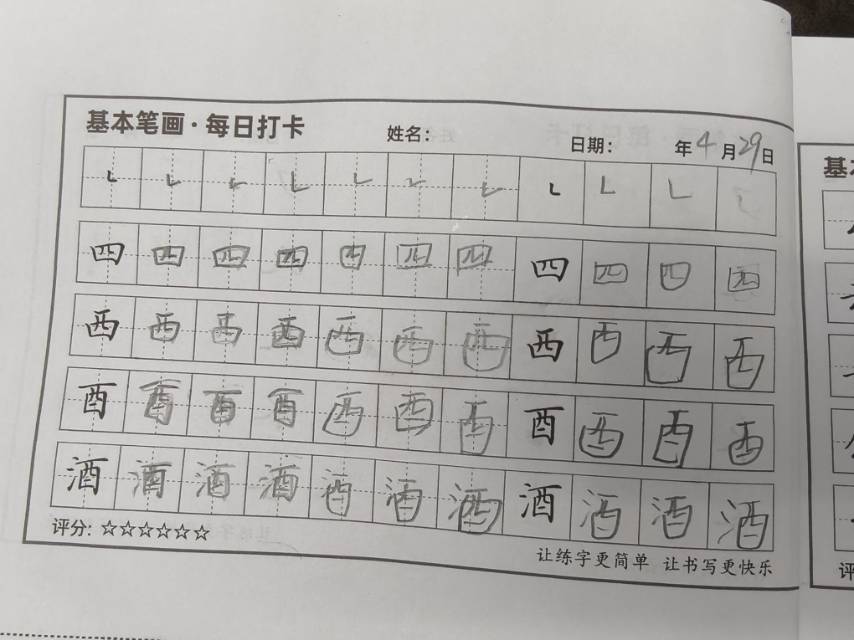 基本笔画·每日打卡 姓名: 日期: 年4月29日
㇄ ㇄ ㇄ ㇄ ㇄ ㇄ ㇄ ㇄ ㇄ ㇄ ㇄
四 四 四 四 四 四 四 四 四 四 四
西 西 西 西 西 西 西 西 西 西 西
酉 酉 酉 酉 酉 酉 酉 酉 酉 酉 酉
酒 酒 酒 酒 酒 酒 酒 酒 酒 酒 酒
评分: ☆☆☆☆☆☆
让练字更简单 让书写更快乐
基
评